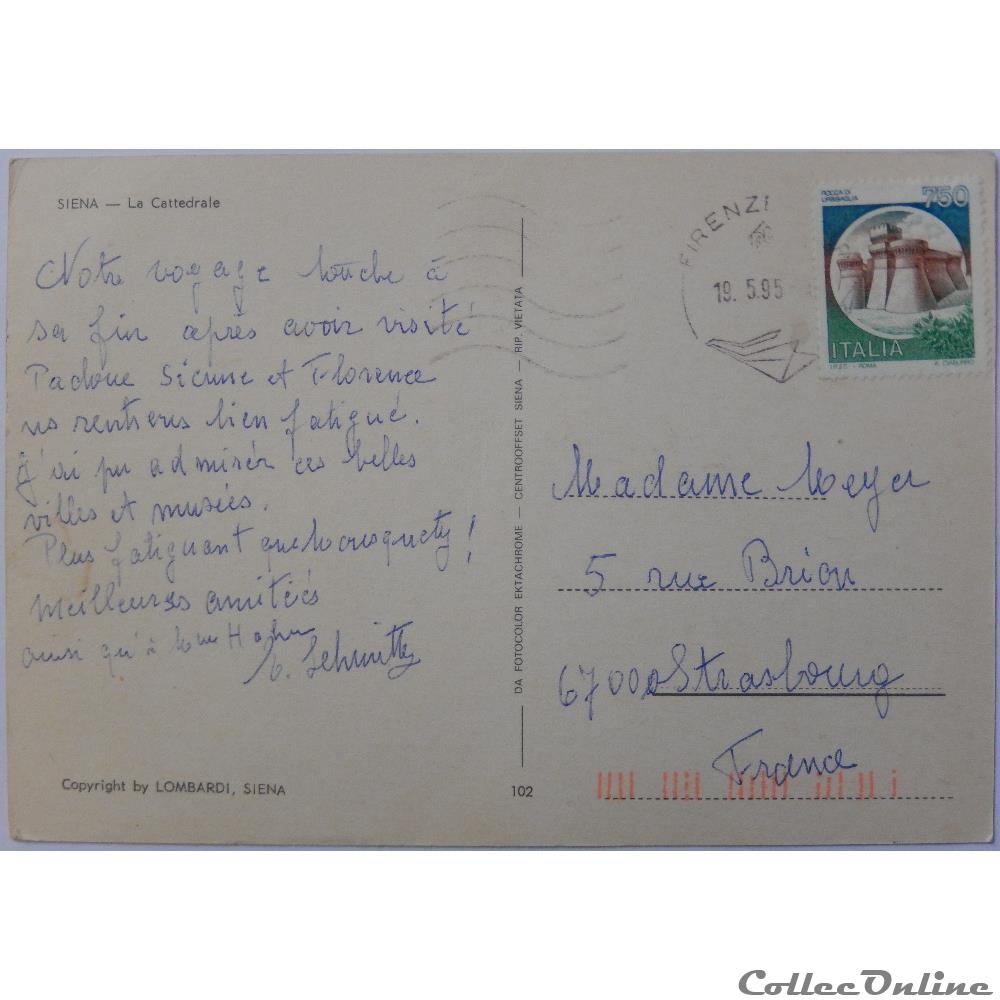 SIENA — La Cattedrale
Notre voyage touche à
sa fin après avoir visité
Padoue Sienne et Florence
ns rentrerons bien fatigué.
J'ai pu admirer ces belles
villes et musées.
Plus fatiguant que
Meilleures amitiés
ainsi qu'à
Schmitt
Copyright by LOMBARDI, SIENA
102
DA FOTOCOLOR EKTACHROME — CENTROOFFSET SIENA — RIP. VIETATA
FIRENZE
19. 5.95
ROCCA DI
URBISAGLIA
750
ITALIA
I.P.Z.S. - ROMA
Madame Meyer
5 rue Brion
67000 Strasbourg
France
CollecOnline